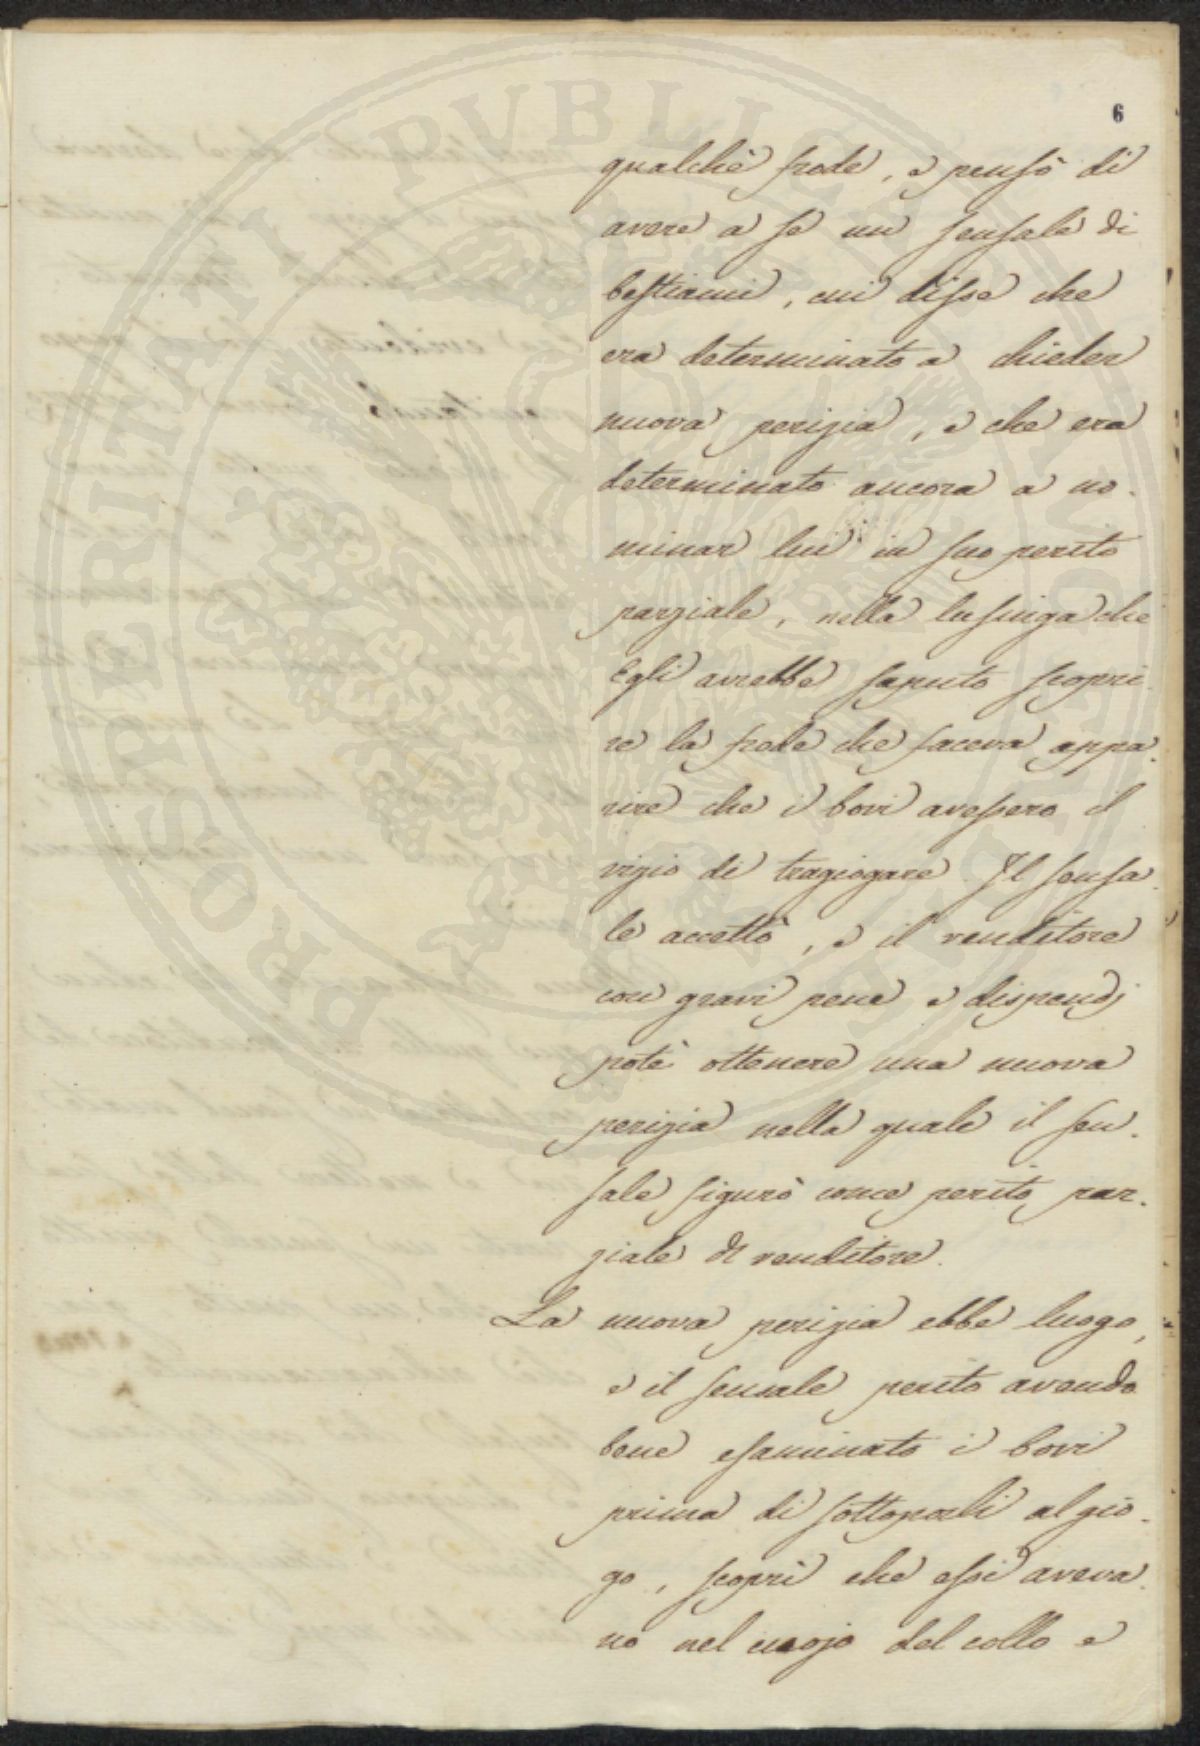 6
PROSPERITATI PUBLICAE AUGENDAE
qualche frode, e pensò di
avere a se un sensale di
bestiami, cui disse che
era determinato a chieder
nuova perizia, e che era
determinato ancora a no-
minar lui in suo perito
parziale, nella lusinga che
Egli avrebbe saputo scopri-
re la frode che faceva appa-
rire che i bovi avessero il
vizio di tragiogare. Il sensa-
le accettò, e il venditore
con gravi pene e dispendj
potè ottenere una nuova
perizia nella quale il sen-
sale figurò come perito par-
ziale del venditore.
La nuova perizia ebbe luogo,
e il sensale perito avendo
bene esaminato i bovi
prima di sottoporli al gio-
go, scoprì che essi aveva-
no nel cuojo del collo e